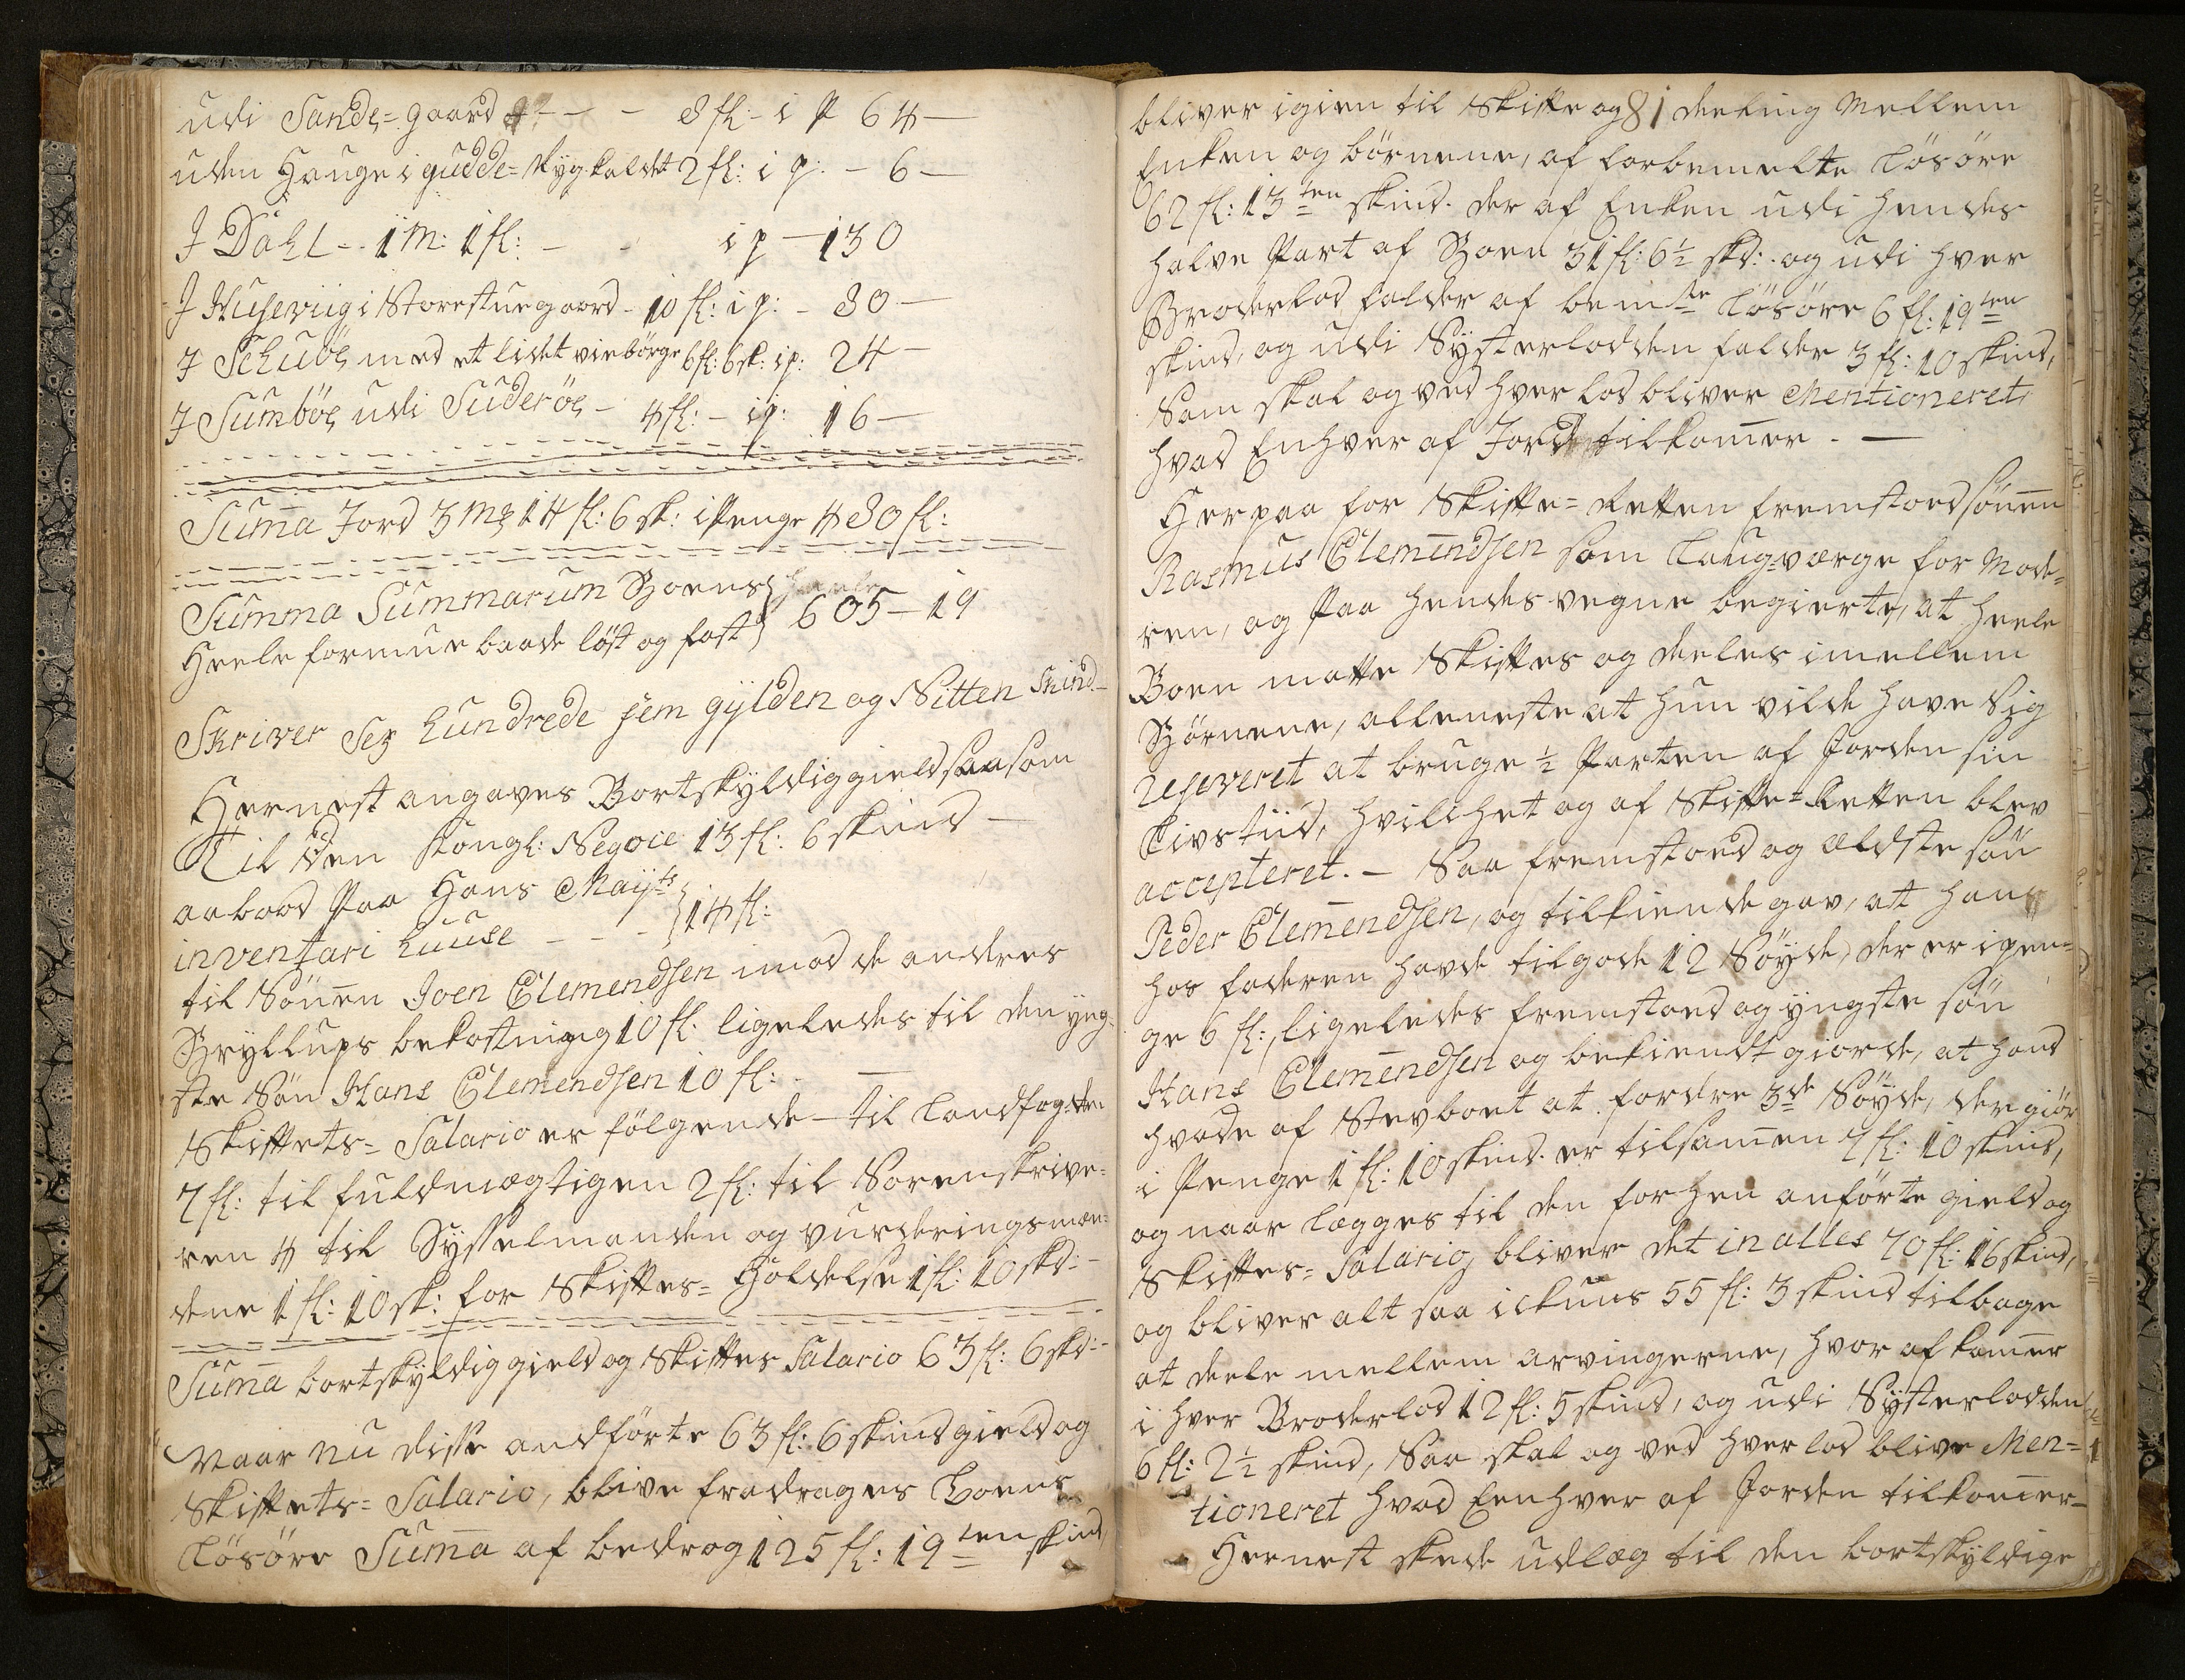 udi Sande=gaard - - - 8 fl: - i p 64 -
uden Hauge i gudde= Ryg kaldet 2 fl: i p: - 6 -
I Dahl - - 1 m: 1 fl: - - i p - 130
I Huseviig i Storestuegaard - 10 fl: i p: - 80 -
I Schuöe med et lidet viebörge 6 fl: 6 sk: i p: 24 -
I Sumböe udi Suderöe - 4 fl: - i p: 16 -
Sum̄a Jord 3 mg 14 fl: 6 sk: i Penge 480 fl:
Summa Summarum Boens
Heele formue baade löst og fast } 605 - 19
Skriver Sex hundrede fem gylden og Nitten Skind
Hernest angaves Bortskyldig gield saasom
Til Den Kongl: Negotie 13 fl: 6 skind -
aabood Paa Hans Maÿts
inventari huuse - - - } 14 fl:
til Sönen Joen Clemendsen imod de andres
Bryllups bekostning 10 fl. ligeledes til den yng-
ste Sön Hans Clemendsen 10 fl: -
Skiftets= Salario er fölgende - til Landfogden
7 fl: til fuldmægtigen 2 fl: til Sorenskrive=
ren 4 til Sysselmanden og vurderingsmæn=
dene 1 fl: 10 sk: for Skiftes= Holdelse 1 fl: 10 skd: -
Sum̄a bortskyldig gield og Skiftes Salario 63 fl: 6 skd: -
Naar nu disse andförte 63 fl: 6 skind gield og
Skiftets= Salario, blive fradrages Boens
Lösöre Sum̄a af bedrog 125 fl: 19 ten skind,
81
bliver igien til Skifte og deeling Mellem
Enken og börnene, af forbemelte Lösöre
62 fl: 13 ten skind. der af Enken udi hendes
halve Part af Boen 31 fl: 6½ skd: og udi hver
Broderlod falder af bemte Lösöre 6 fl: 19 ten
skind, og udi Systerlodden falder 3 fl: 10 skind,
Som skal og ved hver lod bliver Mentioneret,
hvad Enhver af Jord tilkom̄er. -
Herpaa for Skifte= Retten fremstoed sönen
Rasmus Clemendsen som Laugværge for Mode=
ren, og Paa hendes vegne begierte, at heele
Boen matte Skiftes og deeles imellem
Börnene, alleneste at hun vilde have Sig
reserveret at bruge ½ Parten af Jorden sin
Livstiid, hvilchet og af Skifte= Retten blev
accepteret. - Saa fremstoed og Eldste sön
Peder Clemendsen, og tilkiende gav, at hans
hos faderen havde tilgode 12 Söyde, der er i pen=
ge 6 fl:, ligeledes fremstoed og yngste sön
Hans Clemendsen og bekiendt giorde, at hand
hvade af Stervboet at fordre 3de Söyde, der giör
i Penge 1 fl: 10 skind. er tilsam̄en 7 fl: 10 skind,
og naar Lægges til den forhen anförte gield og
Skiftes= Salario, bliver det in alles 70 fl: 16 skind,
og bliver alt saa ickuns 55 fl: 3 skind tilbage
at deele mellem arvingerne, hvor af kom̄er
i hver Broderlod 12 fl: 5 skind, og udi Systerlodden
6 fl: 2½ skind, Saa skal og ved hver lod blive Men=
tioneret hvad Eenhver af Jorden tilkom̄er -
Hernest skede udlæg til den bortskyldige